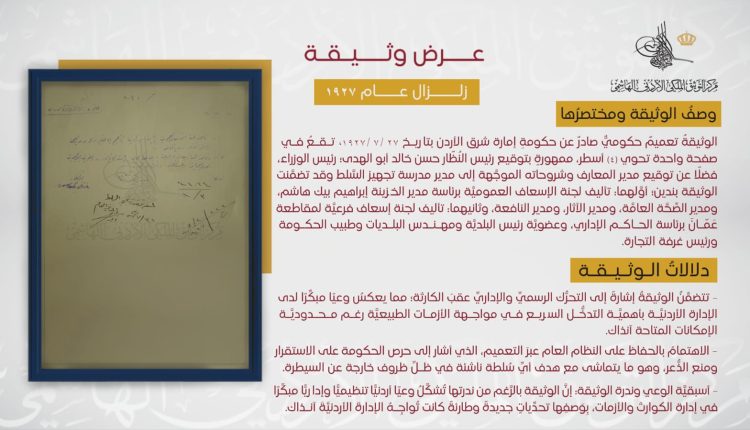 عرض وثيقة
زلزال عام ١٩٢٧
مركز التوثيق الملكي الأردني الهاشمي
وصفُ الوثيقة ومختصرُها
الوثيقةُ تعميمٌ حكوميٌّ صادرٌ عن حكومةِ إمارة شرق الأردن بتاريخ ٢٧ /٧ /١٩٢٧، تقعُ في
صفحة واحدة تحوي (٤) أسطر، ممهورةٍ بتوقيع رئيس النُّظّار حسن خالد أبو الهدى؛ رئيس الوزراء،
فضلًا عن توقيع مدير المعارف وشروحاته الموجَّهة إلى مدير مدرسة تجهيز السَّلط وقد تضمَّنت
الوثيقة بندين؛ أوَّلهما: تأليف لجنة الإسعاف العموميَّة برئاسة مدير الخزينة إبراهيم بيك هاشم،
ومدير الصِّحَّة العامَّة، ومدير الآثار، ومدير النافعة، وثانيهما: تأليف لجنة إسعاف فرعيَّة لمقاطعة
عَمّانَ برئاسة الحاكم الإداري، وعضويَّة رئيس البلديَّة ومهندس البلديات وطبيب الحكومة
ورئيس غرفة التجارة.
دلالاتُ الوثيقة
- تتضمَّنُ الوثيقةُ إشارةً إلى التحرُّك الرسميِّ والإداريِّ عقبَ الكارثة؛ مما يعكسُ وعيًا مبكّرًا لدى
الإدارة الأردنيَّة بأهميَّة التدخُّل السريع في مواجهة الأزمات الطبيعيَّة رغم محدوديَّة
الإمكانات المتاحة آنذاك.
- الاهتمامُ بالحفاظ على النظام العام عبرَ التعميم، الذي أشار إلى حرص الحكومة على الاستقرار
ومنع الذُّعر، وهو ما يتماشى مع هدف أيِّ سُلطة ناشئة في ظلِّ ظروف خارجة عن السيطرة.
- أسبقيَّة الوعي وندرة الوثيقة: إنَّ الوثيقة بالرَّغم من ندرتها تُشكِّلُ وعيًا أردنيًّا تنظيميًّا وإداريًّا مبكرًا
في إدارة الكوارث والأزمات، بوَصفها تحدِّياتٍ جديدةً وطارئةً كانت تُواجِهُ الإدارة الأردنيَّة آنذاك.